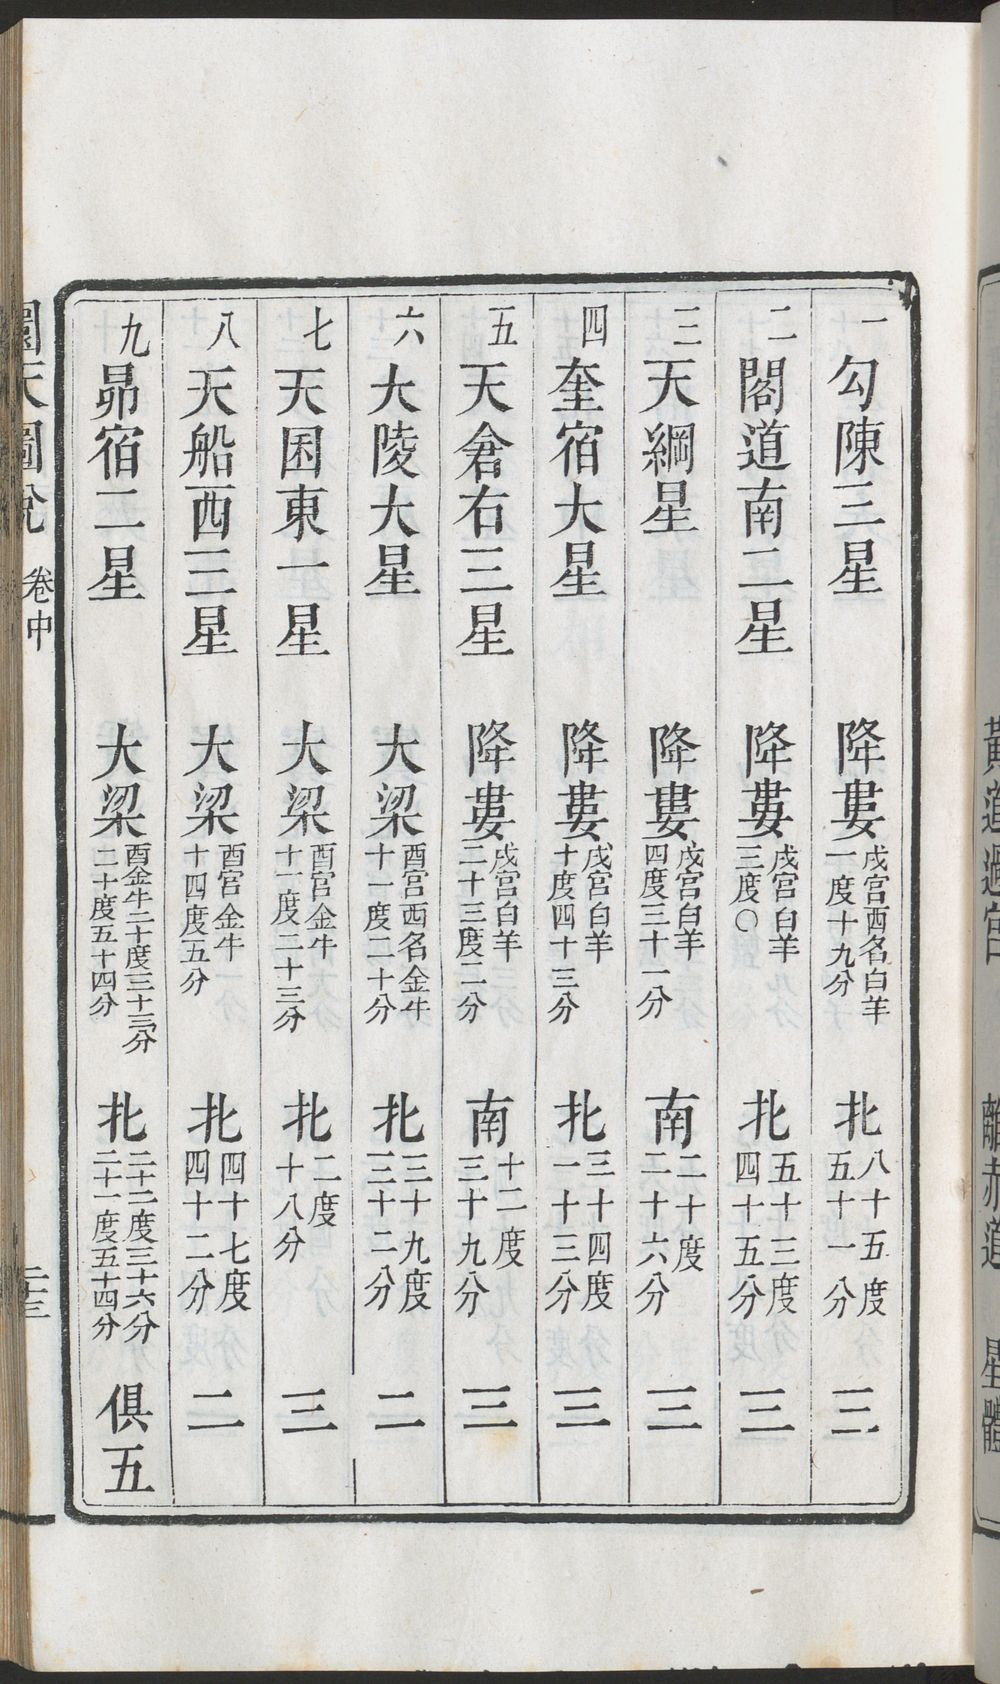 黃道過宮　離赤道　星體
一　勾陳三星　降婁　戌宮西名白羊一度十九分　北　八十五度五十一分　三
二　閣道南二星　降婁　戌宮白羊三度〇　北　五十三度四十五分　三
三　天綱星　降婁　戌宮白羊四度三十一分　南　二十度二十六分　三
四　奎宿大星　降婁　戌宮白羊十度四十三分　北　三十四度一十三分　三
五　天倉右三星　降婁　戌宮白羊二十三度二分　南　十二度三十九分　三
六　大陵大星　大梁　酉宮西名金牛十一度二十分　北　三十九度三十二分　二
七　天囷東一星　大梁　酉宮金牛十一度二十三分　北　二度十八分　三
八　天船西三星　大梁　酉宮金牛十四度五分　北　四十七度四十二分　二
九　昴宿二星　大梁　酉金牛二十度三十三分二十度五十四分　北　二十二度三十六分二十一度五十四分　俱五
圜天圖說　卷中　二十三